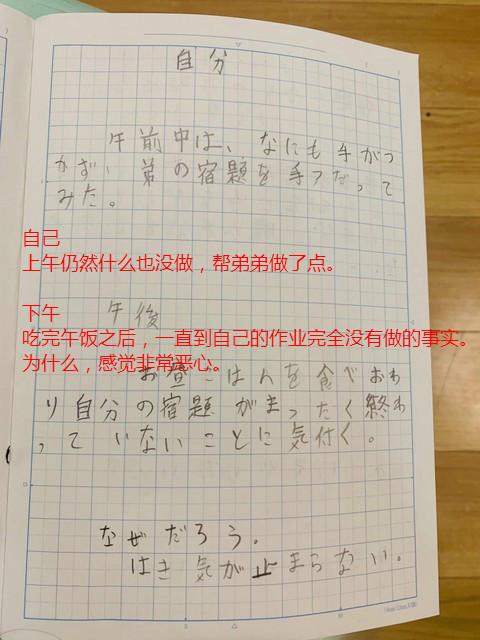 自分
午前中は、なにも手がつ
かず、弟の宿題を手つだって
みた。
自己
上午仍然什么也没做，帮弟弟做了点。
下午
午後
吃完午饭之后，一直到自己的作业完全没有做的事实。
为什么，感觉非常恶心。
お昼ごはんを食べおわ
り自分の宿題がまったく終わ
っていないことに気付く。
なぜだろう。
はき気が止まらない。